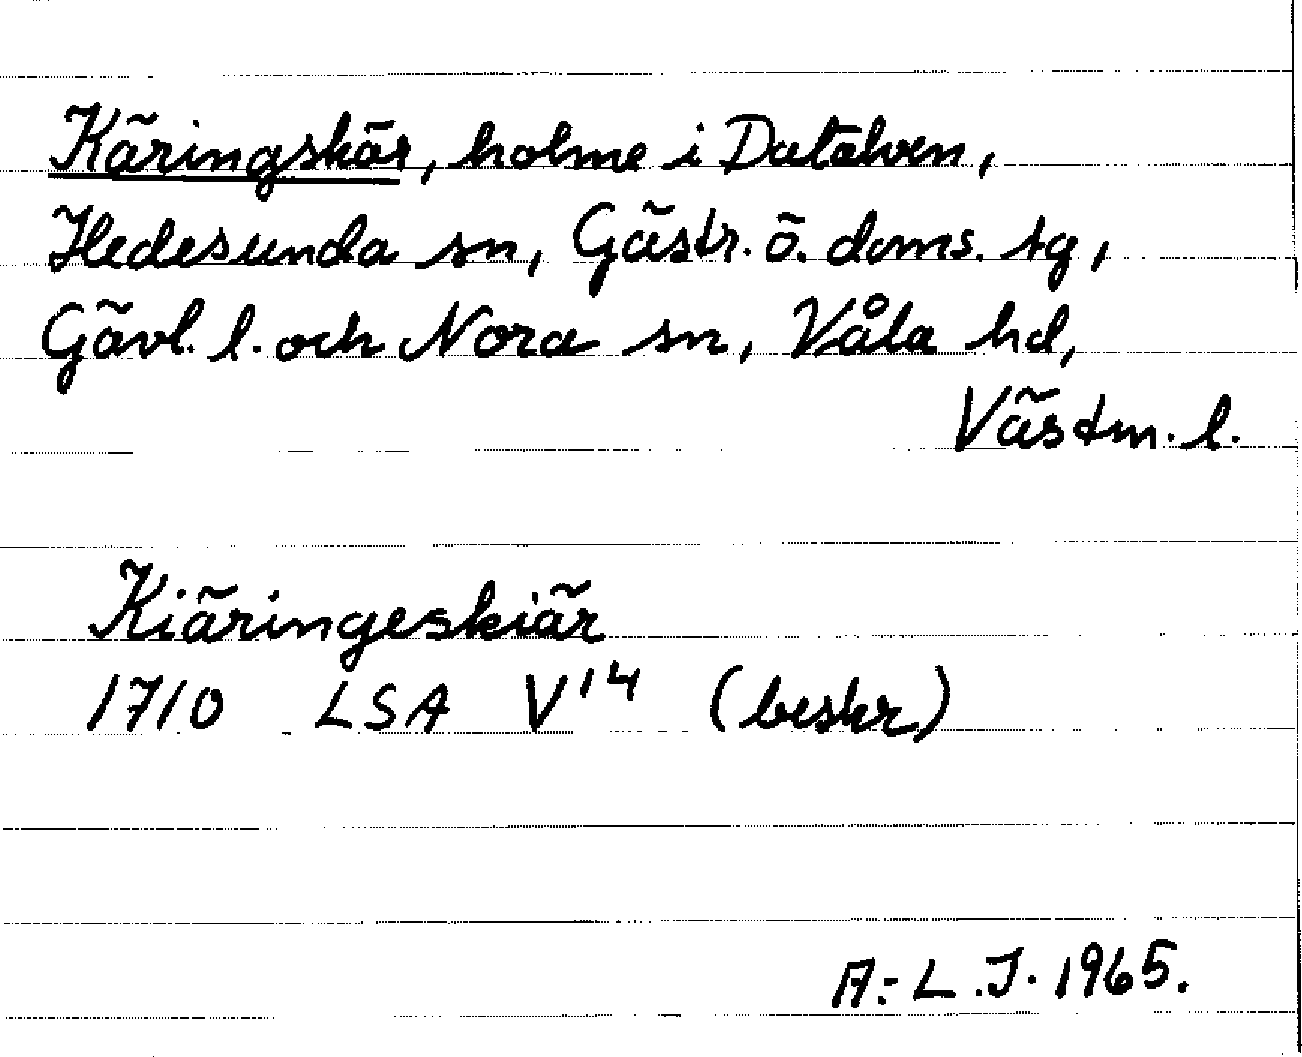 Käringskär, holme i Dalälven,
Hedesunda sn, Gästr. ö. doms. tg,
Gävl. l. och Nora sn, Våla hd,
Västm. l.
Kiäringeskiär
1710 LSA V14 (beskr)
A.-L.J. 1965.